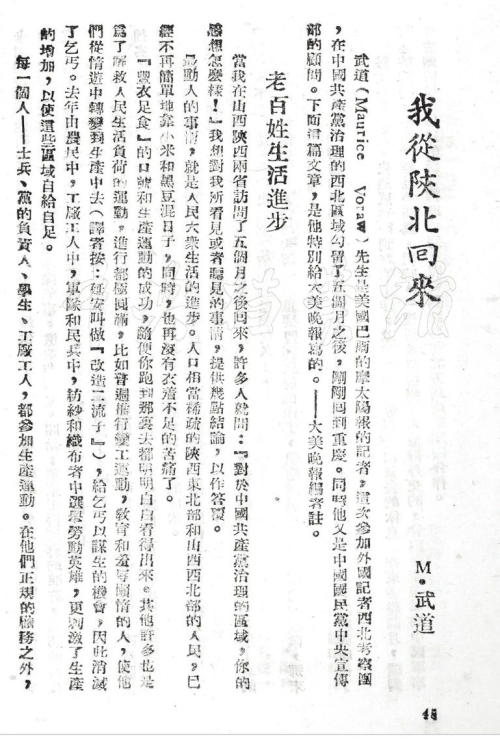 我從陝北回來
M·武道
武道(Maurice Voraw)先生是美國巴爾的摩太陽報的記者,這次參加外國記者西北考察團
,在中國共產黨治理的西北區域勾留了五個月之後,剛剛回到重慶。同時他又是中國國民黨中央宣傳
部的顧問。下面這篇文章,是他特別給大美晚報寫的。——大美晚報編者註。
老百姓生活進步
當我在山西陝西兩省訪問了五個月之後回來,許多人就問:『對於中國共產黨治理的區域,你的
感想怎麼樣!』我想對我所看見或者聽見的事情,提供幾點結論,以作答覆。
最動人的事情,就是人民大衆生活的進步。人口相當稀疏的陝西東北部和山西西北部的人民,已
經不再簡單地靠小米和黑豆混日子,同時,也再沒有衣着不足的苦痛了。
『豐衣足食』的口號和生產運動的成功,隨便你跑到那裏去都明明白白看得出來。其他許多也是
爲了解救人民生活負荷的運動,進行都極圓滿,比如普遍推行變工運動,敎育和羞辱懶惰的人,使他
們從惰遊中轉變到生產中去(譯者按:延安叫做『改造二流子』),給乞丐以謀生的機會,因此消滅
了乞丐。去年由農民中,工廠工人中,軍隊和民兵中,紡紗和織布者中選舉勞動英雄,更刺激了生產
的增加,以使這些區域自給自足。
每一個人——士兵、黨的負責人、學生、工廠工人,都參加生產運動。在他們正規的職務之外,
48